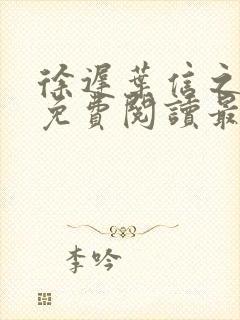 徐遲葉信之
免費閱讀最
李吟